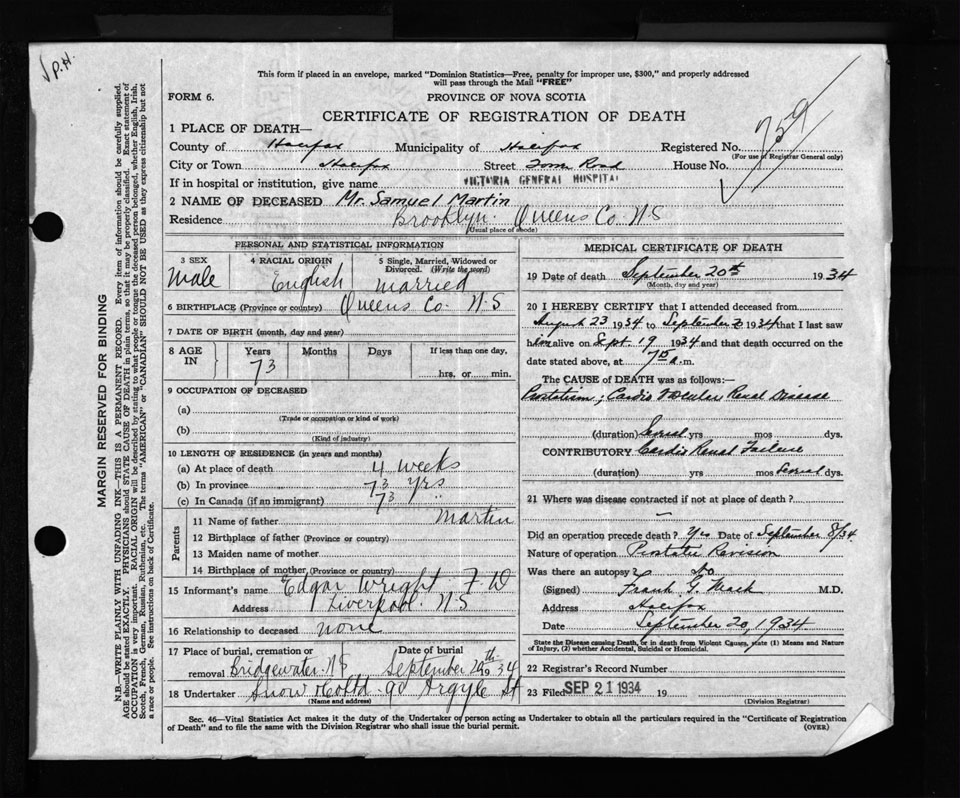 √ P.H.
This form if placed in an envelope, marked "Dominion Statistics—Free, penalty for improper use, $300," and properly addressed
will pass through the Mail "FREE"
FORM 6.
PROVINCE OF NOVA SCOTIA
CERTIFICATE OF REGISTRATION OF DEATH
759
1 PLACE OF DEATH—
County of Halifax Municipality of Halifax Registered No.
(For use of Registrar General only)
City or Town Halifax Street Tower Road House No.
If in hospital or institution, give name VICTORIA GENERAL HOSPITAL
2 NAME OF DECEASED Mr. Samuel Martin
Residence Brooklyn. Queens Co. N.S
(Usual place of abode)
MARGIN RESERVED FOR BINDING
N.B.—WRITE PLAINLY WITH UNFADING INK—THIS IS A PERMANENT RECORD. Every item of information should be carefully supplied.
AGE should be stated EXACTLY. PHYSICIANS should STATE CAUSE OF DEATH in plain terms, so that it may be properly classified. Exact statement of
OCCUPATION is very important. RACIAL ORIGIN will be described by stating to what people or tongue the deceased person belonged, whether English, Irish,
Scotch, French, German, Russian, Ruthenian, etc. The terms "AMERICAN" or "CANADIAN" SHOULD NOT BE USED as they express citizenship but not
a race or people. See instructions on back of Certificate.
PERSONAL AND STATISTICAL INFORMATION
3 SEX 4 RACIAL ORIGIN 5 Single, Married, Widowed or
Divorced. (Write the word)
Male English Married
6 BIRTHPLACE (Province or country) Queens Co. N.S
7 DATE OF BIRTH (month, day and year)
8 AGE IN Years Months Days If less than one day,
73 hrs, or min.
9 OCCUPATION OF DECEASED
(a)
(Trade or occupation or kind of work)
(b)
(Kind of industry)
10 LENGTH OF RESIDENCE (in years and months)
(a) At place of death 4 weeks
(b) In province 73 yrs
(c) In Canada (if immigrant) 73 "
Parents
11 Name of father Martin
12 Birthplace of father (Province or country)
13 Maiden name of mother
14 Birthplace of mother (Province or country)
15 Informant's name Edgar Wright F.D
Address Liverpool. N.S
16 Relationship to deceased none
17 Place of burial, cremation or Date of burial
removal Bridgewater. N.S September 20th 1934
18 Undertaker Snow & Co Ltd. 90 Argyle St
(Name and address)
MEDICAL CERTIFICATE OF DEATH
19 Date of death September 20th 1934
(Month, day and year)
20 I HEREBY CERTIFY that I attended deceased from
August 23 1934 to September 1934 that I last saw
him alive on Sept 19 1934 and that death occurred on the
date stated above, at a.m.
The CAUSE of DEATH was as follows:—
Prostatism; Cardio Vascular Renal Disease
(duration) Several yrs mos dys.
CONTRIBUTORY Cardio Renal Failure
(duration) yrs mos Several dys.
21 Where was disease contracted if not at place of death?
—
Did an operation precede death? Yes Date of September 8/34
Nature of operation Prostatic Revision
Was there an autopsy? No
(Signed) Frank G. Mack M.D.
Address Halifax
Date September 20, 1934
State the Disease causing Death, or in death from Violent Causes, state (1) Means and Nature
of Injury, (2) whether Accidental, Suicidal or Homicidal.
22 Registrar's Record Number
23 Filed SEP 21 1934 19
(Division Registrar)
Sec. 46—Vital Statistics Act makes it the duty of the Undertaker or person acting as Undertaker to obtain all the particulars required in the "Certificate of Registration
of Death" and to file the same with the Division Registrar who shall issue the burial permit.
(OVER)